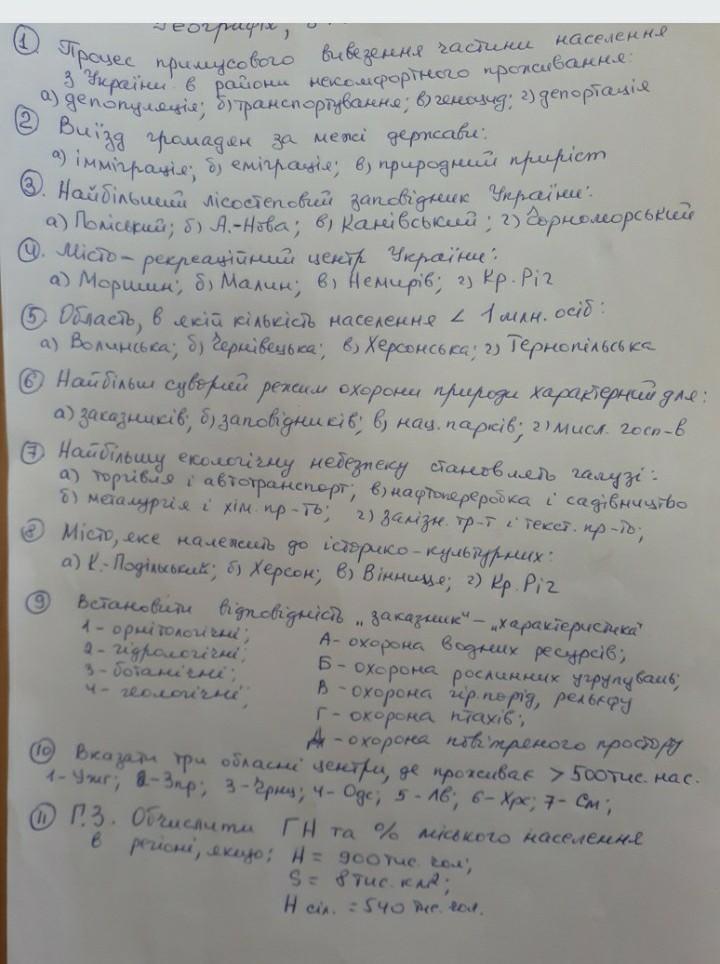 Географія,
① Процес примусового вивезення частини населення
з України в райони некомфортного проживання:
а) депопуляція; б) транспортування; в) геноцид; г) депортація
② Виїзд громадян за межі держави:
а) імміграція; б) еміграція; в) природний приріст
③. Найбільший лісостеповий заповідник України:
а) Поліський; б) А.-Нова; в) Канівський; г) Чорноморський
④. Місто - рекреаційний центр України:
а) Моршин; б) Малин; в) Немирів; г) Кр. Ріг
⑤. Область, в якій кількість населення < 1 млн. осіб:
а) Волинська; б) Чернівецька; в) Херсонська; г) Тернопільська
⑥ Найбільш суворий режим охорони природи характерний для:
а) заказників; б) заповідників; в) нац. парків; г) мисл. госп-в
⑦ Найбільшу екологічну небезпеку становлять галузі:
а) торгівля і автотранспорт; в) нафтопереробка і садівництво
б) металургія і хім. пр-ть; г) залізн. тр-т і текст. пр-ть;
⑧ Місто, яке належить до історико-культурних:
а) К.-Подільський; б) Херсон; в) Вінниця; г) Кр. Ріг
⑨ Встановити відповідність "заказник" - "характеристика"
1 - орнітологічні; А - охорона водних ресурсів;
2 - гідрологічні; Б - охорона рослинних угрупувань;
3 - ботанічні; В - охорона гір. порід, рельєфу
4 - геологічні; Г - охорона птахів;
Д - охорона повітряного простору
⑩ Вказати три обласні центри, де проживає > 500 тис. нас.
1 - Ужг; 2 - Зпр; 3 - Чрнц; 4 - Одс; 5 - Лв; 6 - Хрс; 7 - См;
⑪ Г.З. Обчислити ГН та % міського населення
в регіоні, якщо; Н = 900 тис. чол;
S = 8 тис. км²;
Н сіл. = 540 тис. чол.